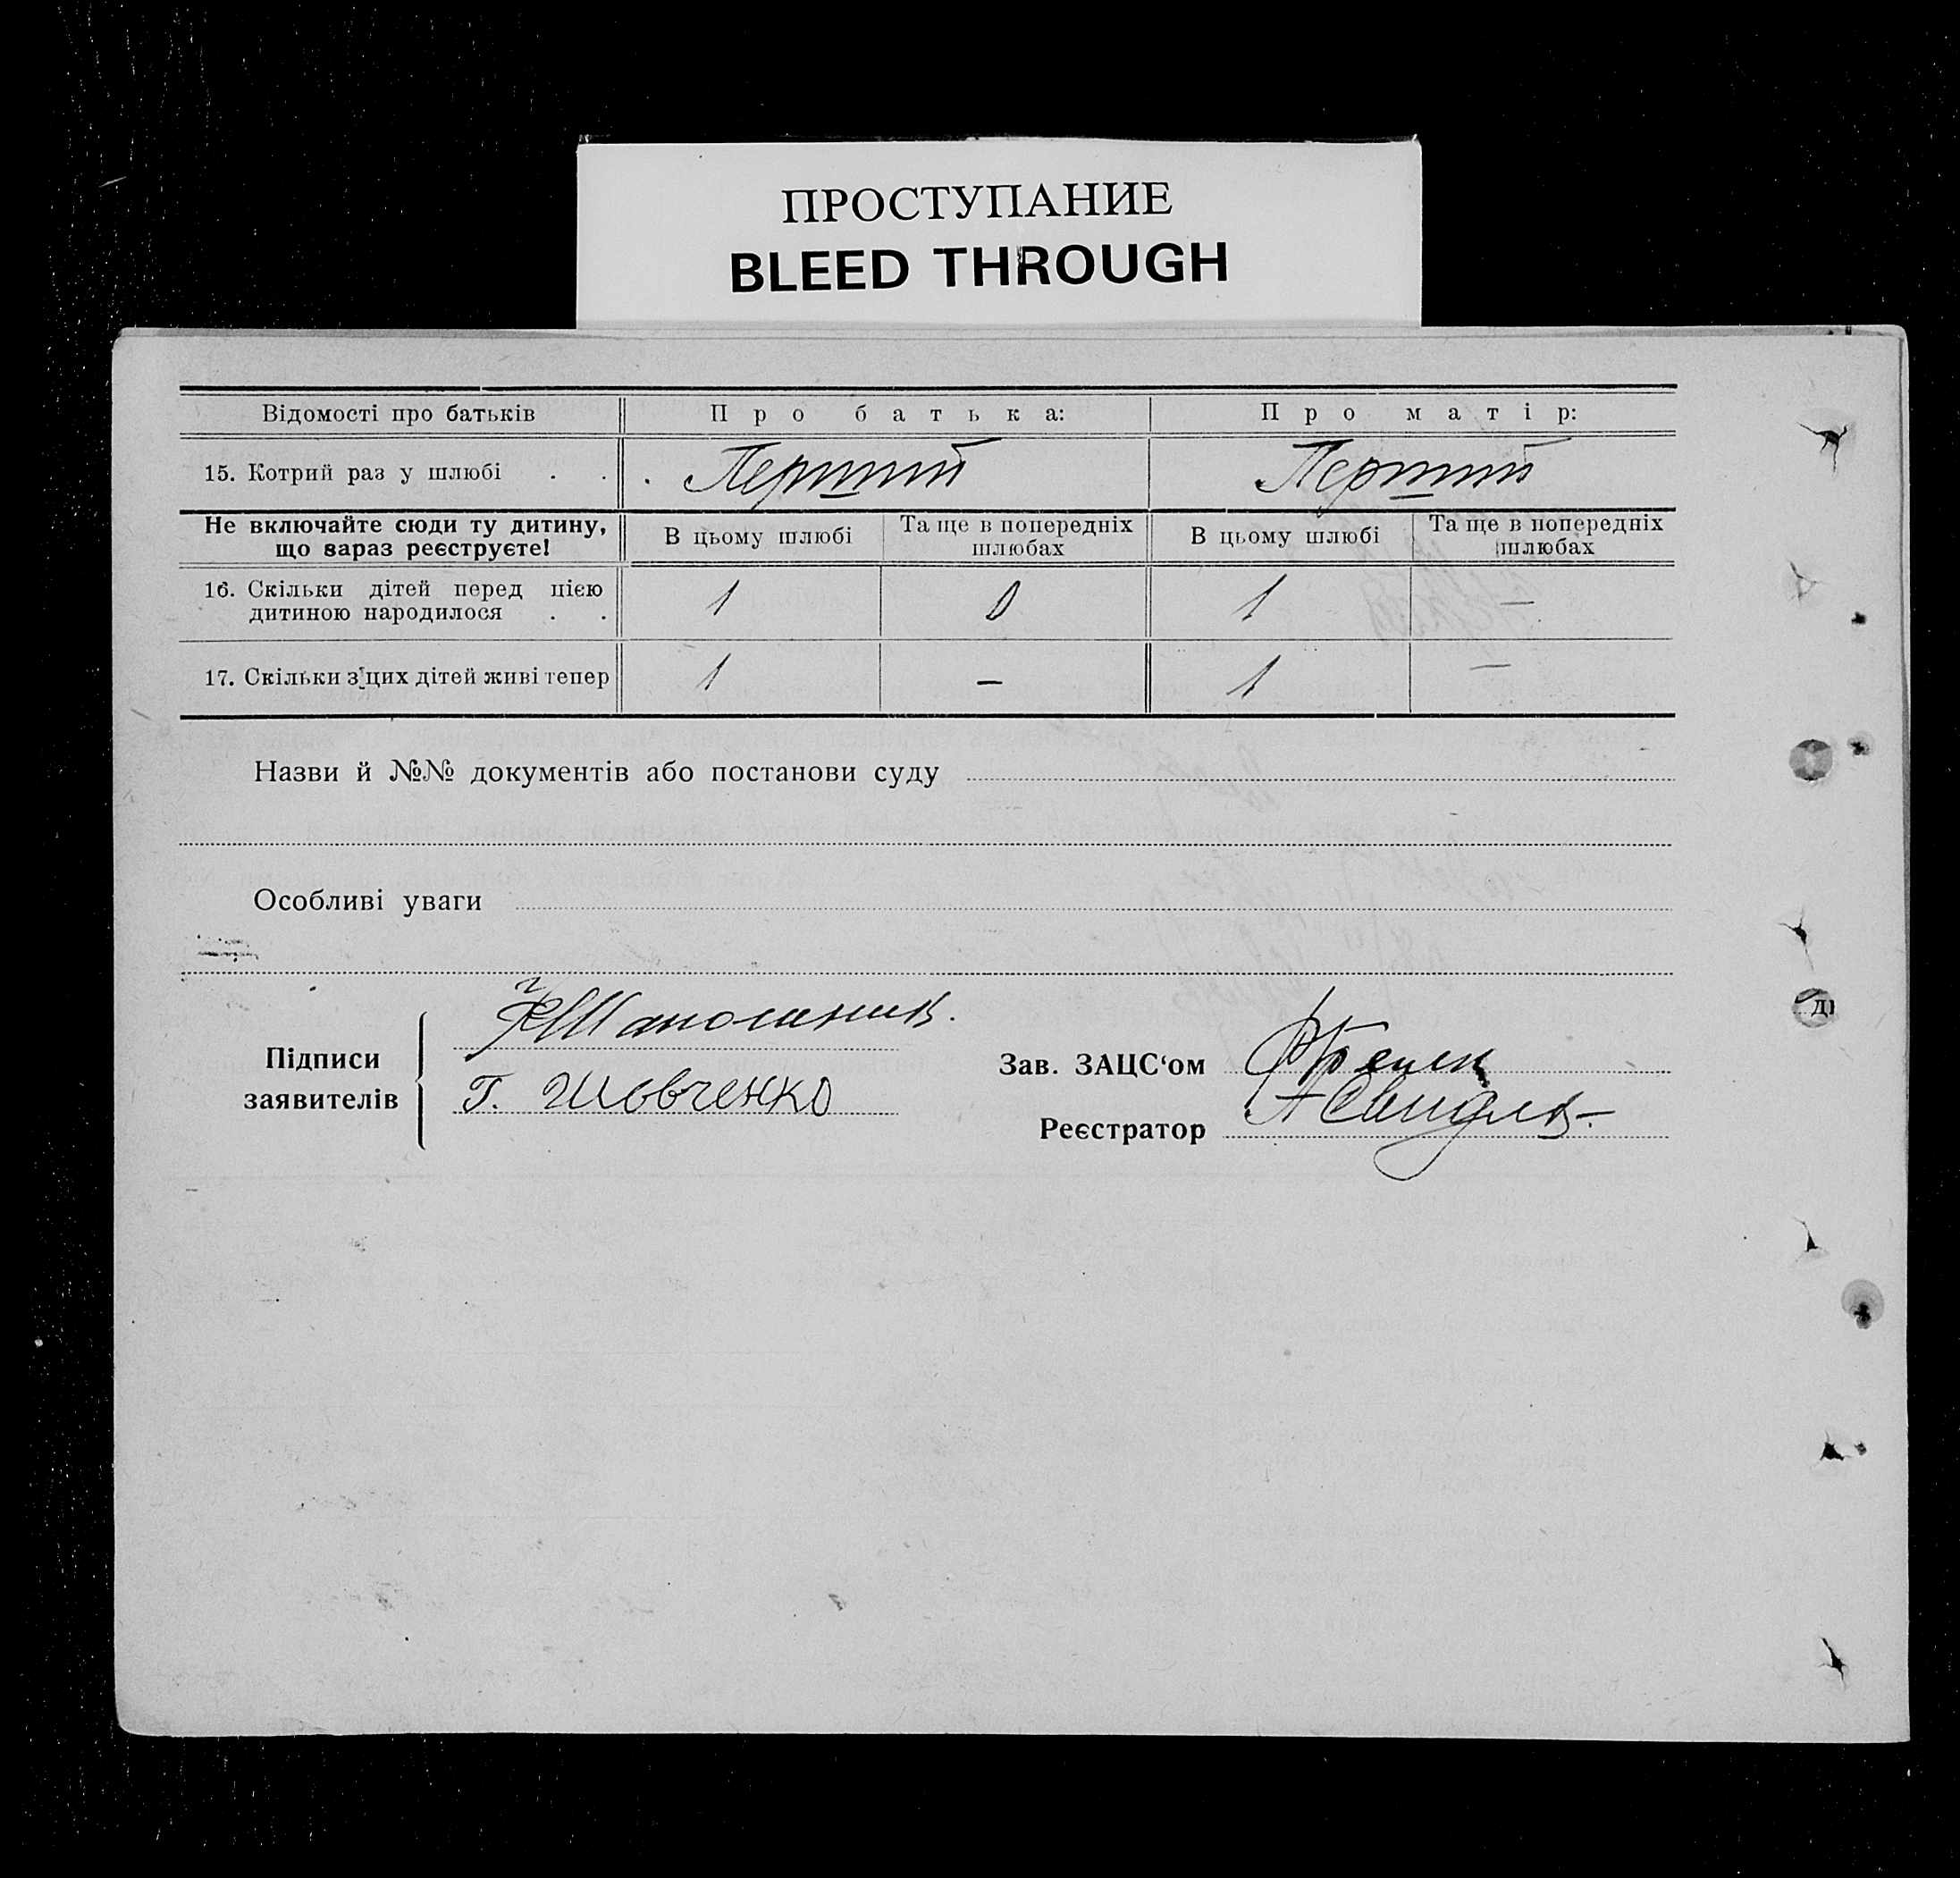 ПРОСТУПАНИЕ
BLEED THROUGH
Відомості про батьків Про батька: Про матір:
15. Котрий раз у шлюбі . . . Перший Перший
Не включайте сюди ту дитину, що зараз реєструєте! В цьому шлюбі Та ще в попередніх шлюбах В цьому шлюбі Та ще в попередніх шлюбах
16. Скільки дітей перед цією дитиною народилося . . 1 0 1 —
17. Скільки з цих дітей живі тепер 1 — 1 —
Назви й №№ документів або постанови суду
Особливі уваги
Підписи заявителів
Г. Шевченко
Зав. ЗАЦС‘ом
Реєстратор